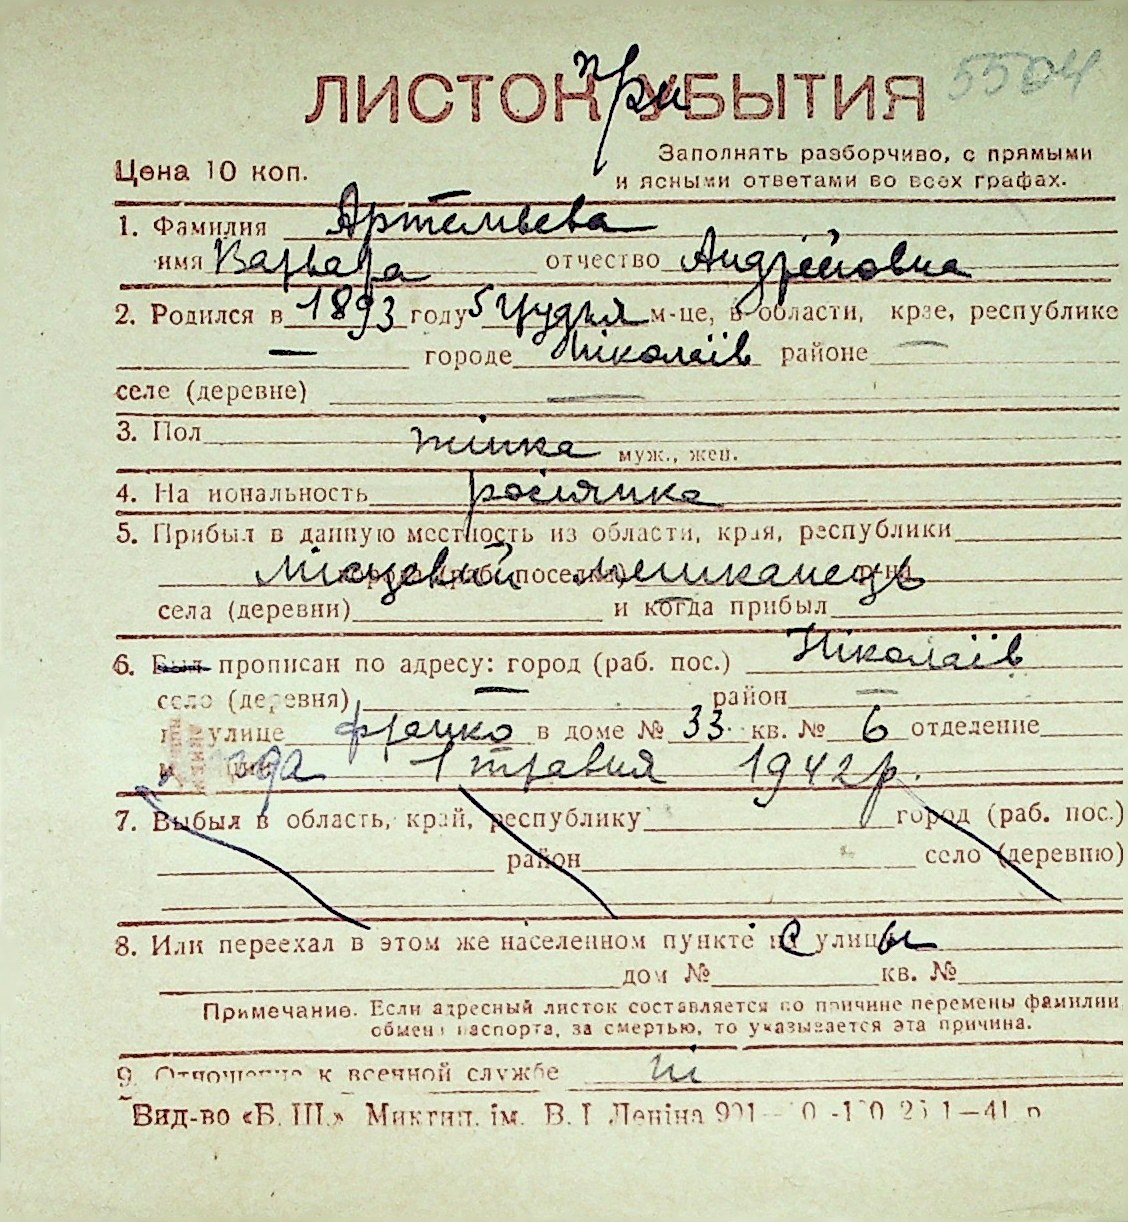 5504
ЛИСТОК при УБЫТИЯ
Заполнять разборчиво, с прямыми
Цена 10 коп.
и ясными ответами во всех графах.
1. Фамилия Артемьева
имя Варвара отчество Андрійовна
2. Родился в 1893 году 5 грудня м-це, в области, крае, республике
— городе Ніколаїв районе —
селе (деревне) —
3. Пол жінка муж., жен.
4. Национальность росіянка
5. Прибыл в данную местность из области, края, республики
місцевий мешканець
села (деревни) и когда прибыл
6. Был прописан по адресу: город (раб. пос.) Ніколаїв
село (деревня) — район —
улице Франко в доме № 33 кв. № 6 отделение
1 травня 1942 р.
7. Выбыл в область, край, республику город (раб. пос.)
район село (деревню)
8. Или переехал в этом же населенном пункте с улицы
дом № кв. №
Примечание. Если адресный листок составляется по причине перемены фамилии
обмена паспорта, за смертью, то указывается эта причина.
9. Отношение к военной службе ні
Вид-во «Б. Ш.» Миктип. ім. В. І Леніна